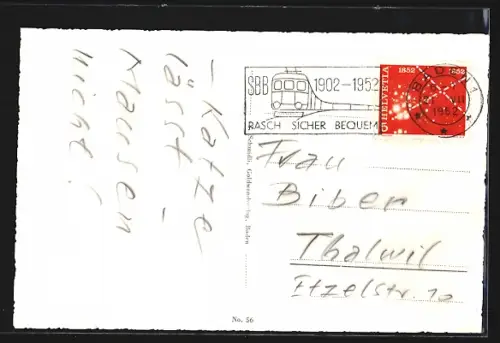 – Katze
lässt –
Mausen
nicht!
SBB 1902–1952
RASCH SICHER BEQUEM
1852 1952
HELVETIA
BADEN 1
1952
Frau
Biber
Thalwil
Etzelstr. 10
No. 56